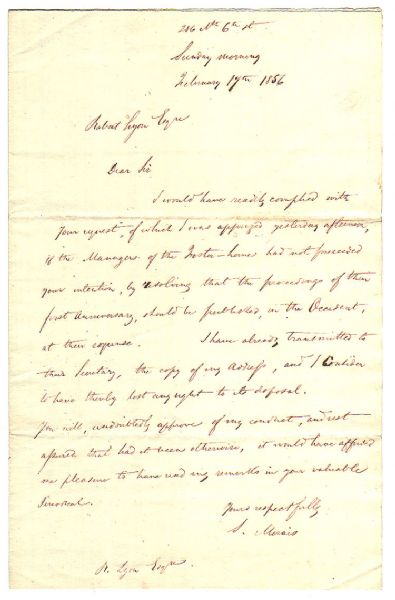 286 Nth 6th st
Sunday morning
February 17th 1856
Robert Lyon Esqre
Dear Sir
I would have readily complied with
your request, of which I was apprised yesterday afternoon,
if the Managers of the Foster-home had not preceeded
your intention, by resolving that the proceedings of their
first Anniversary, should be published, in the Occident,
at their expense. I have already transmitted to
their Secretary, the copy of my Address, and I Consider
to have therby lost any right to its disposal.
You will, undoubtedly approve of my conduct, and rest
assured that had it been otherwise, it would have afforded
me pleasure to have read my remarks in your valuable
Journal.
Yours respectfully
S. Morais
R. Lyon Esqre